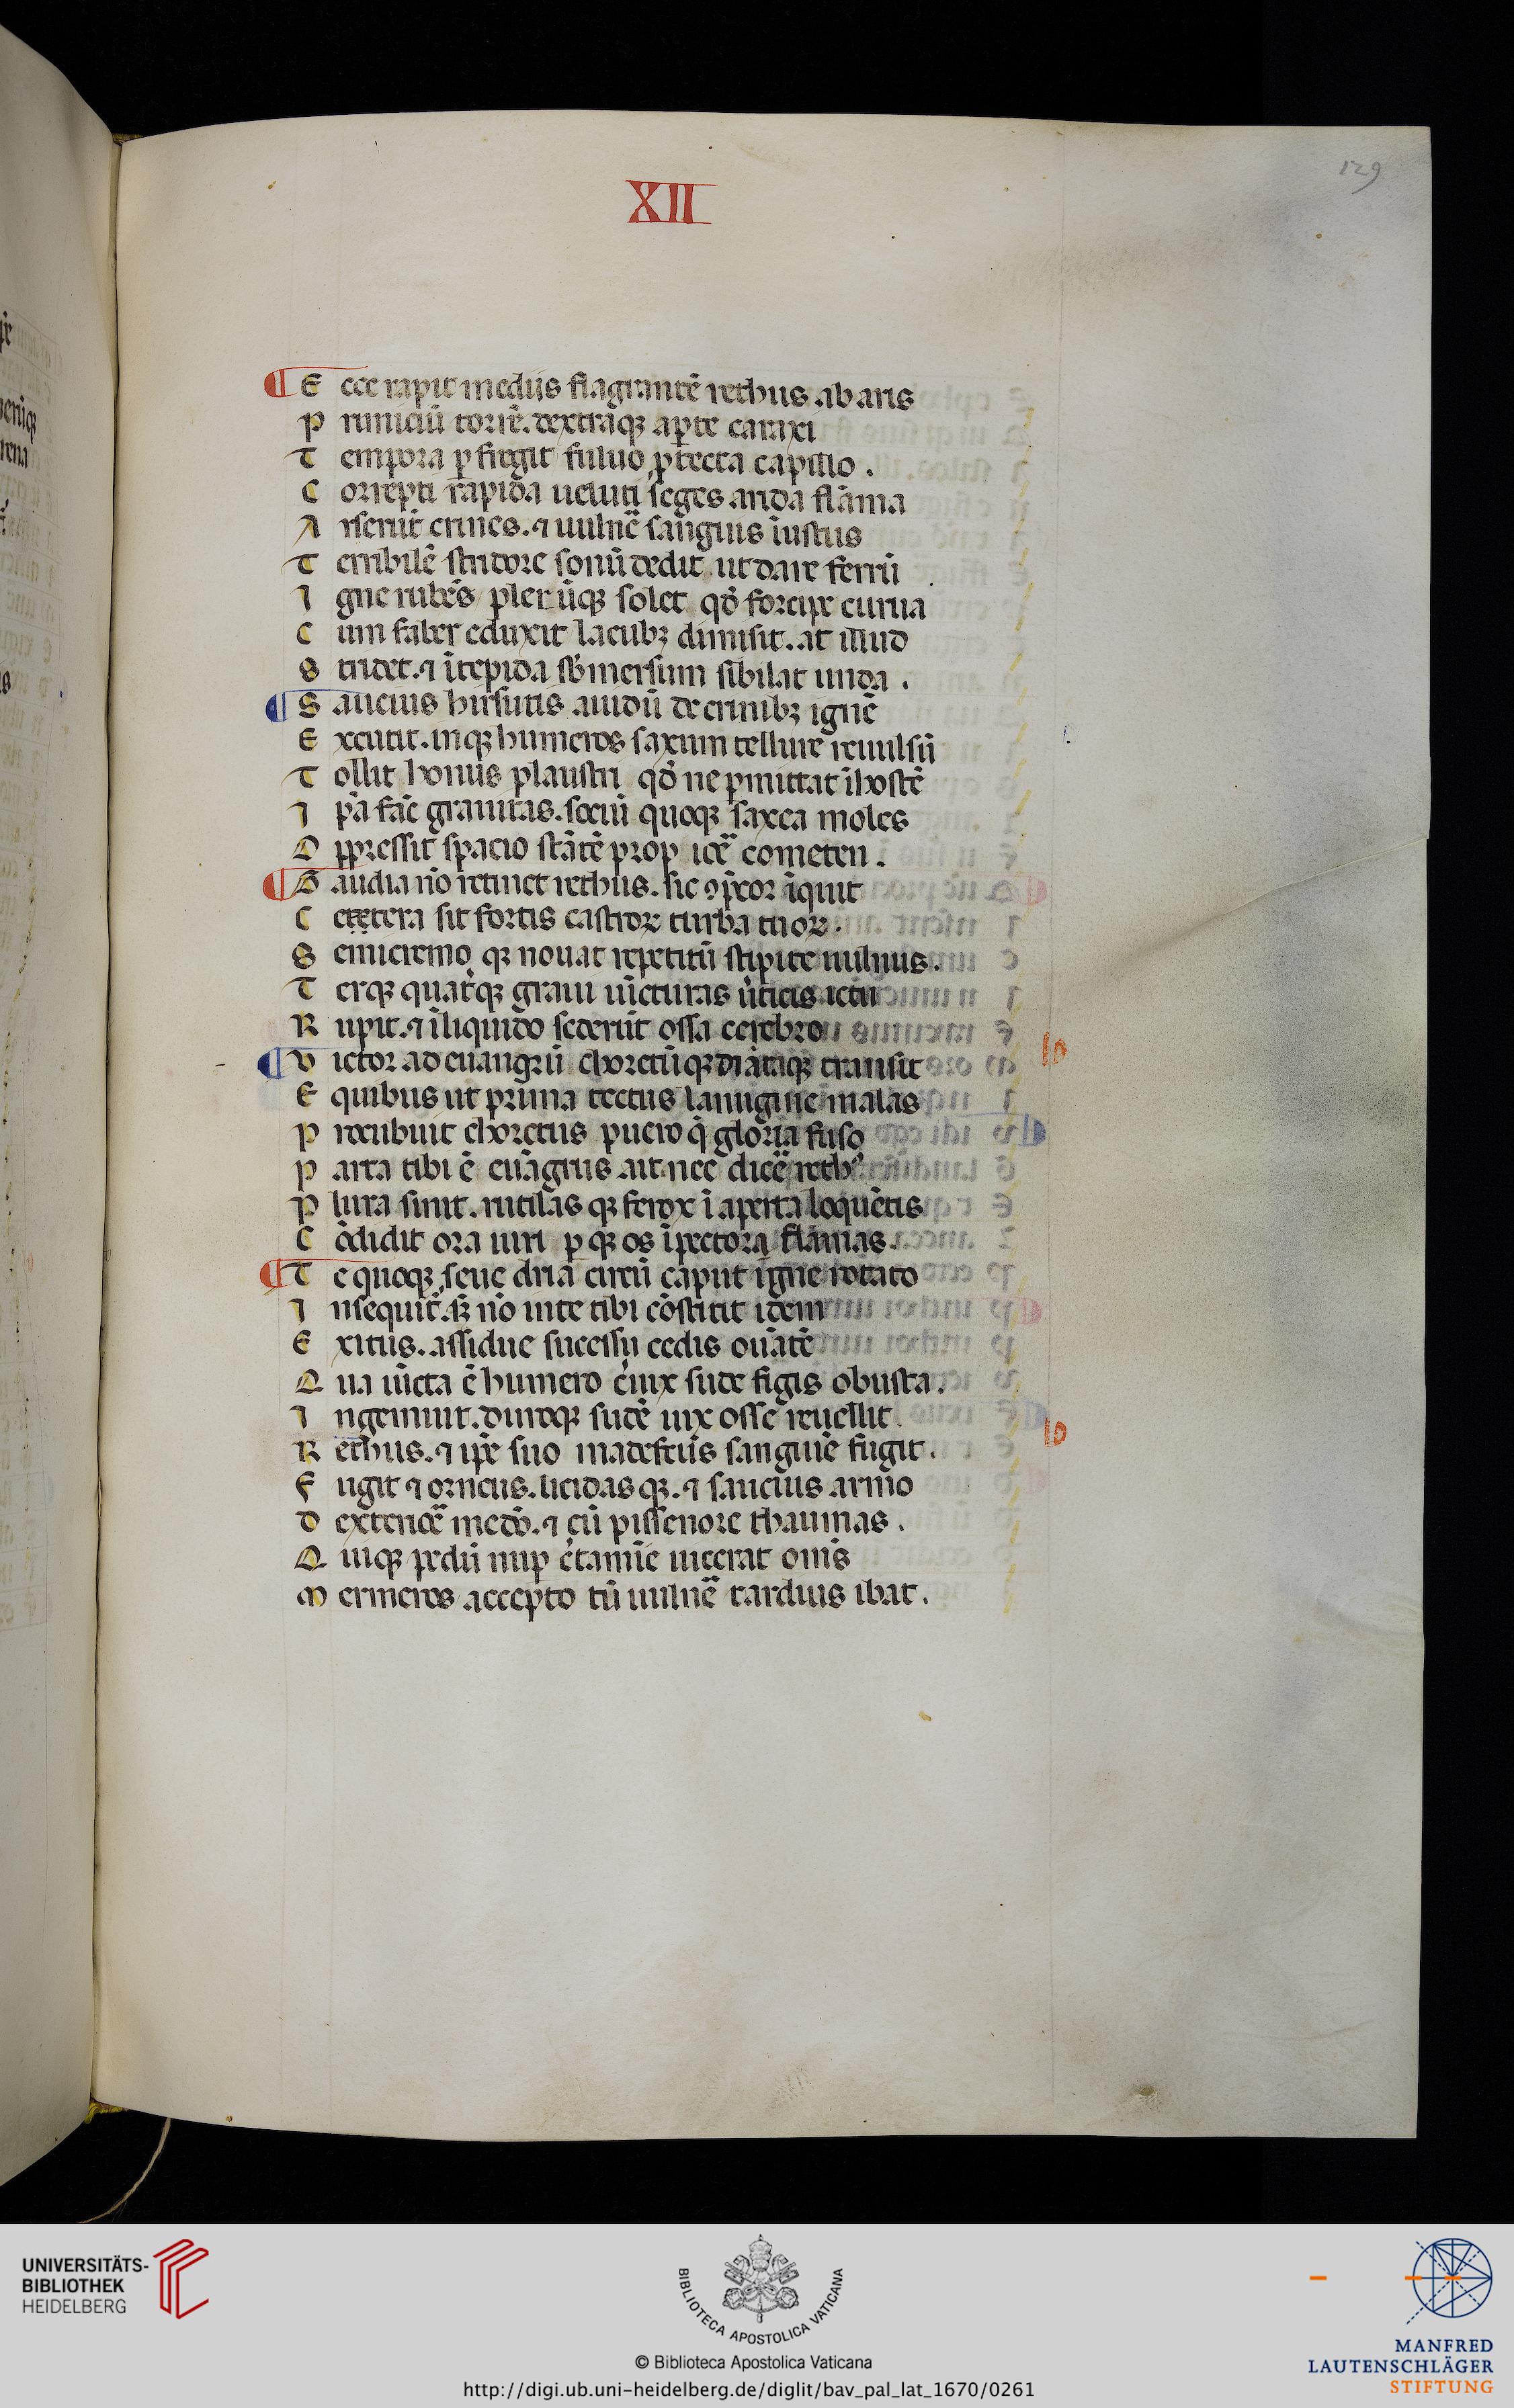 129
XII
E cce rapit medijs flagrantē rethus ab aris
P runiciū torrē. dextraq; a parte caraxi
T empora pfregit fuluo ptecta capillo .
C orrepti rapida ueluti seges arida flāma
A rserūt crines. ⁊ uulnē sanguis īustus
T erribilē stridore sonū dedit ut dare ferrū
I gne rubēs plerūq; solet qd̄ forcipe curua
C um faber eduxit lacub; dimisit. at illud
S tridet. ⁊ ītepida sbmersum sibilat unda .
S aucius hirsutis auidū de crinib; ignē
E xcutit. inq; humeros saxum tellure reuulsū
T ollit honus plaustri qd̄ ne pmittat īhostē
I pā fac̄ grauitas. sociū quoq; saxea moles
O ppressit spacio stātē propiōē cometen .
G audia nō retinet rethus. sic ꝯpcor īquit
C etetera sit fortis castroꝝ turba tuoꝝ.
S emicremo q; nouat repetitū stipite uulnus .
T erq; quat̄q; graui uicturas ūticis ictu
R upit. ⁊ īliquido sederūt ossa cerebro
V ictor ad euangrū choretūq; diātaq; transit
E quibus ut prima tectus lanugine malas
P rocubuit choretus puero q̄ gloria fuso
P arta tibi ē euāgrus ait nec dicē reth⁹
P lura sinit. rutilas q; ferox ī aperta loquētis
C ōdidit ora uiri p q; os īpectora flāmas .
T e quoq; seue dria circū caput igne rotato
I nsequit̄. s; nō inte tibi cōstitit idem
E xitus. assidue sucessu cedis ouātē
Q ua iūcta ē humero c̄uix sude figis obusta .
I ngemuit. duroq; sudē uix osse reuellit
R ethus. ⁊ ipe suo madefctūs sanguīe fugit .
F ugit ⁊ orneus. licidas q;. ⁊ saucius armo
D exteriōē medō. ⁊ cū pissenore thaumas .
Q uiq; pedū nup c̄tamīe uicerat om̄is
M ermeros accepto tū uulnē tardius ibat .
UNIVERSITÄTS-
BIBLIOTHEK
HEIDELBERG
BIBLIOTECA APOSTOLICA VATICANA
© Biblioteca Apostolica Vaticana
http://digi.ub.uni-heidelberg.de/diglit/bav_pal_lat_1670/0261
MANFRED
LAUTENSCHLÄGER
STIFTUNG